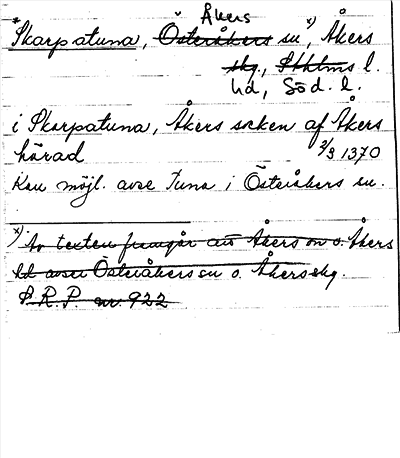 Åkers
*Skarpatuna, Österåkers sn *), Åkers
skg., Sthlms l.
hd, Söd. l.
i Skarpatuna, Åkers socken af Åkers
härad 3/3 1370
Kan möjl. avse Tuna i Österåkers sn.
*) Av texten framgår att Åkers sn o. Åkers
hd avser Österåkers sn o. Åkers skg.
P.R.P. nr. 922